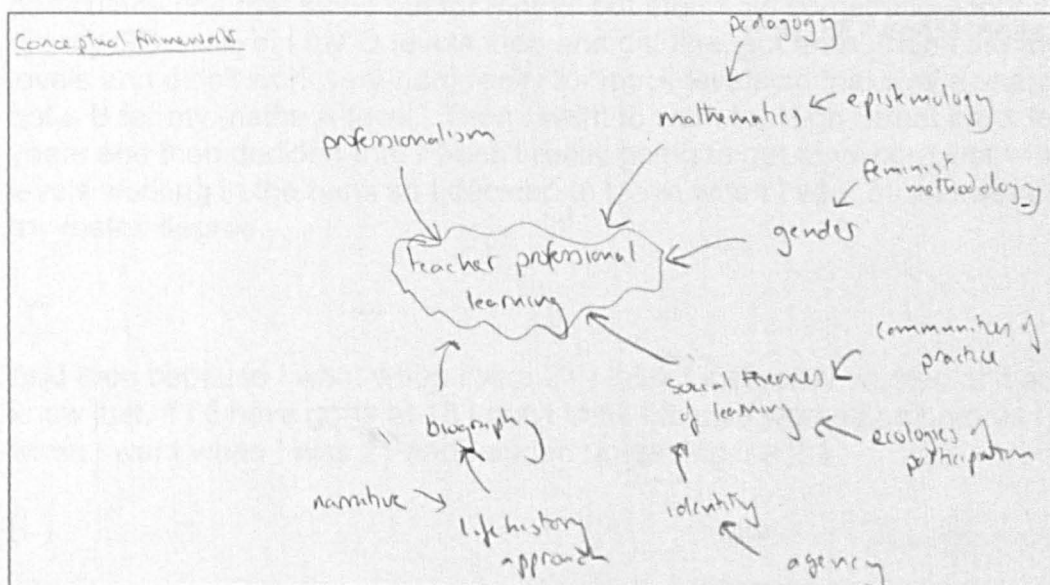 Conceptual frameworks
pedagogy
professionalism
mathematics
epistemology
feminist
methodology
gender
teacher professional
learning
communities of
practice
social theories
of learning
ecologies of
participation
biography
narritive
life history
approach
identity
agency